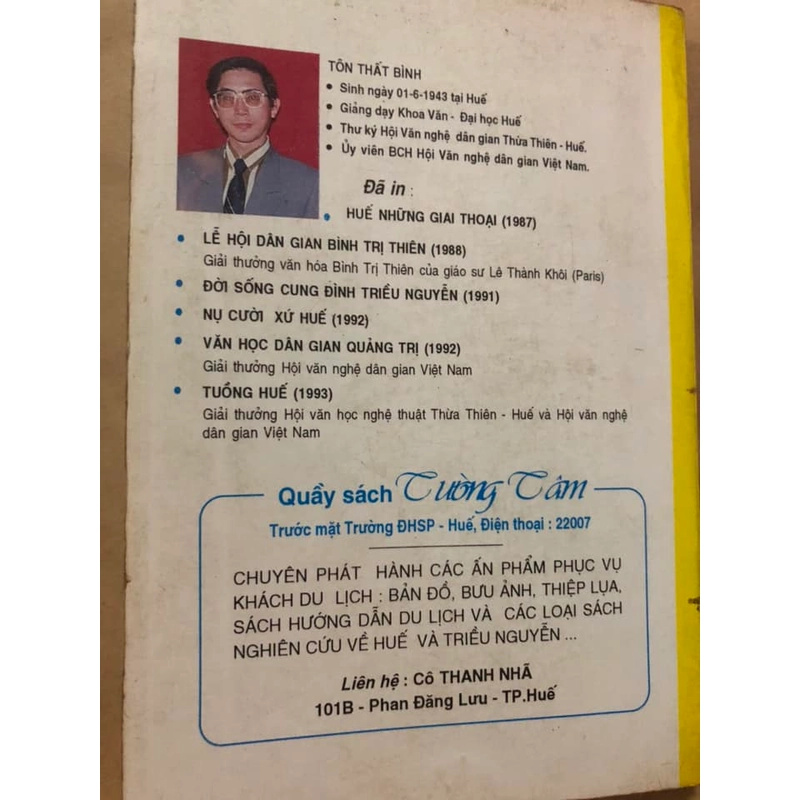 TÔN THẤT BÌNH
• Sinh ngày 01-6-1943 tại Huế
• Giảng dạy Khoa Văn - Đại học Huế
• Thư ký Hội Văn nghệ dân gian Thừa Thiên - Huế.
• Ủy viên BCH Hội Văn nghệ dân gian Việt Nam.
Đã in :
• HUẾ NHỮNG GIAI THOẠI (1987)
• LỄ HỘI DÂN GIAN BÌNH TRỊ THIÊN (1988)
Giải thưởng văn hóa Bình Trị Thiên của giáo sư Lê Thành Khôi (Paris)
• ĐỜI SỐNG CUNG ĐÌNH TRIỀU NGUYỄN (1991)
• NỤ CƯỜI XỨ HUẾ (1992)
• VĂN HỌC DÂN GIAN QUẢNG TRỊ (1992)
Giải thưởng Hội văn nghệ dân gian Việt Nam
• TUỒNG HUẾ (1993)
Giải thưởng Hội văn học nghệ thuật Thừa Thiên - Huế và Hội văn nghệ
dân gian Việt Nam
Quầy sách Tường Tâm
Trước mặt Trường ĐHSP - Huế, Điện thoại : 22007
CHUYÊN PHÁT HÀNH CÁC ẤN PHẨM PHỤC VỤ
KHÁCH DU LỊCH : BẢN ĐỒ, BƯU ẢNH, THIỆP LỤA,
SÁCH HƯỚNG DẪN DU LỊCH VÀ CÁC LOẠI SÁCH
NGHIÊN CỨU VỀ HUẾ VÀ TRIỀU NGUYỄN ...
Liên hệ : Cô THANH NHÃ
101B - Phan Đăng Lưu - TP.Huế